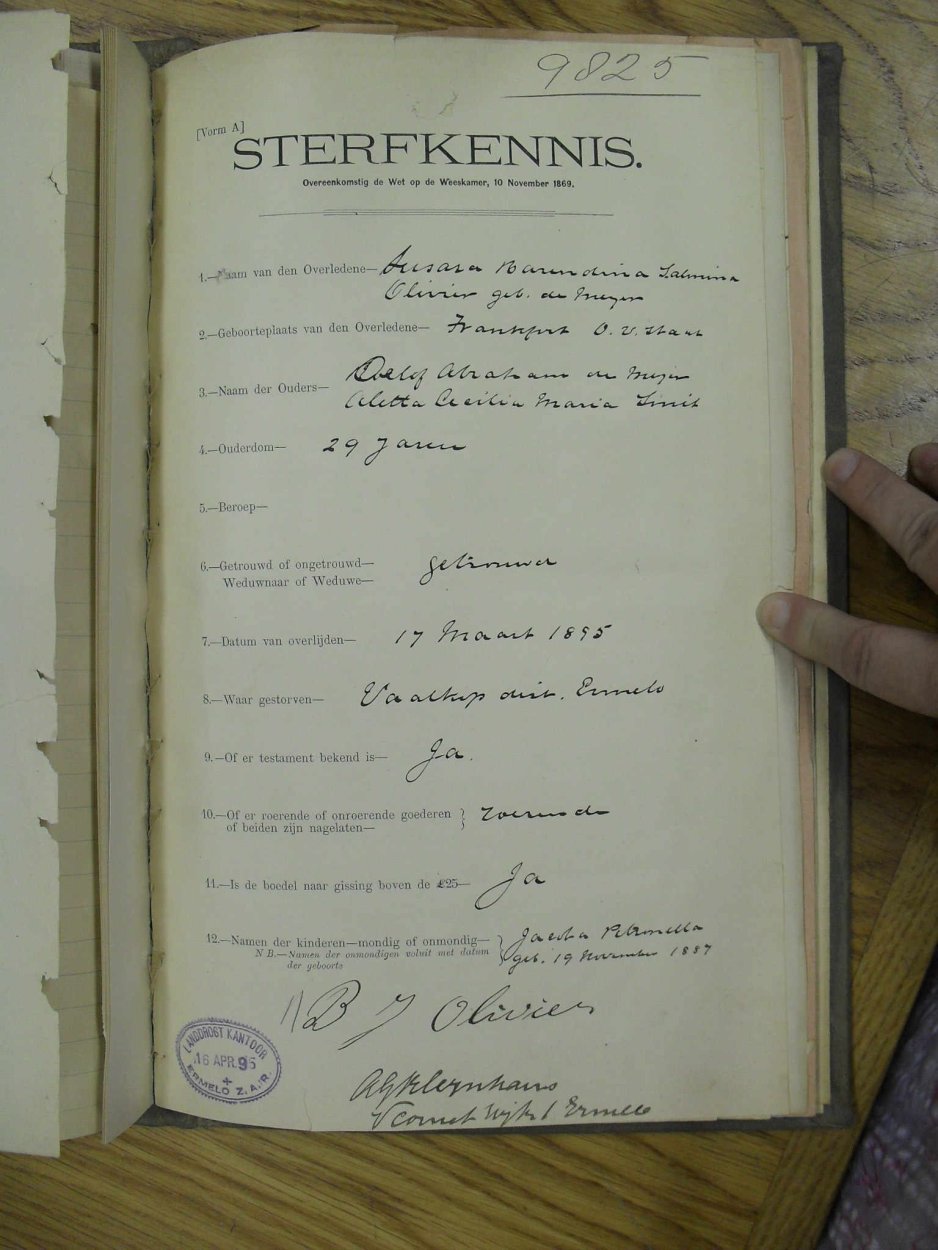 9825
[Vorm A]
STERFKENNIS.
Overeenkomstig de Wet op de Weeskamer, 10 November 1869.
1.—Naam van den Overledene— Susara Barendina Salmina
Olivier geb. de Meyer
2.—Geboorteplaats van den Overledene— Frankfort O. V. Staat
3.—Naam der Ouders— Detlof Abraham de Meyer
Aletta Cecilia Maria Smit
4.—Ouderdom— 29 Jaren
5.—Beroep—
6.—Getrouwd of ongetrouwd— getrouwd
Weduwnaar of Weduwe—
7.—Datum van overlijden— 17 Maart 1895
8.—Waar gestorven— Vaalkop dist. Ermelo
9.—Of er testament bekend is— Ja.
10.—Of er roerende of onroerende goederen roerende
of beiden zijn nagelaten—
11.—Is de boedel naar gissing boven de £25— Ja
12.—Namen der kinderen—mondig of onmondig— Jacoba Petronella
N B.—Namen der onmondigen voluit met datum geb. 19 November 1887
der geboorte
B J Olivier
LANDDROST KANTOOR
16 APR. 95
ERMELO Z.A.R.
AGKleynhans
VCornet Wijk 1 Ermelo